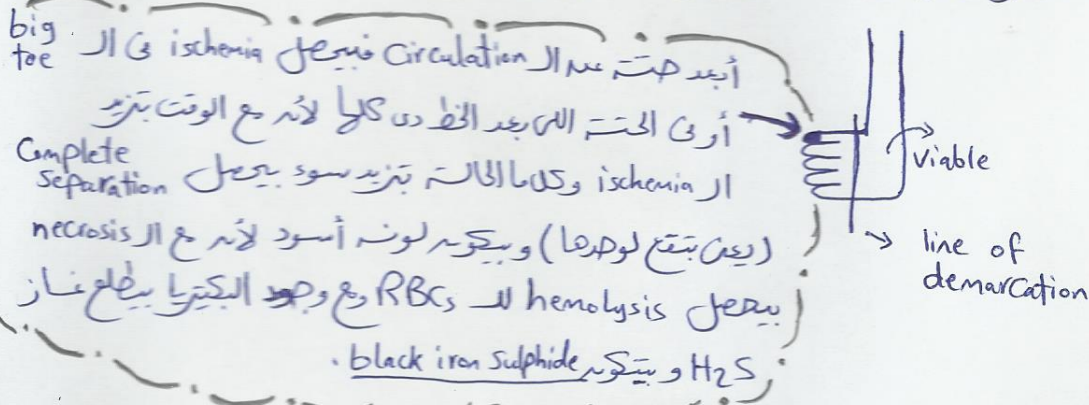 أبعد حتة عن ال Circulation فبيحصل ischemia فى ال big toe
أو فى الحتة اللى بعد الخط دى كلها لأنه مع الوقت بتزيد
ال ischemia وكل ما الحالة بتزيد سوء بيحصل Complete separation
(يعنى بتقع لوحدها) وبيكون لونه أسود لأنه مع ال necrosis
بيحصل hemolysis لل RBCs ومع وجود البكتيريا بيطلع غاز
H2S وبيتكون black iron sulphide.
viable
line of
demarcation